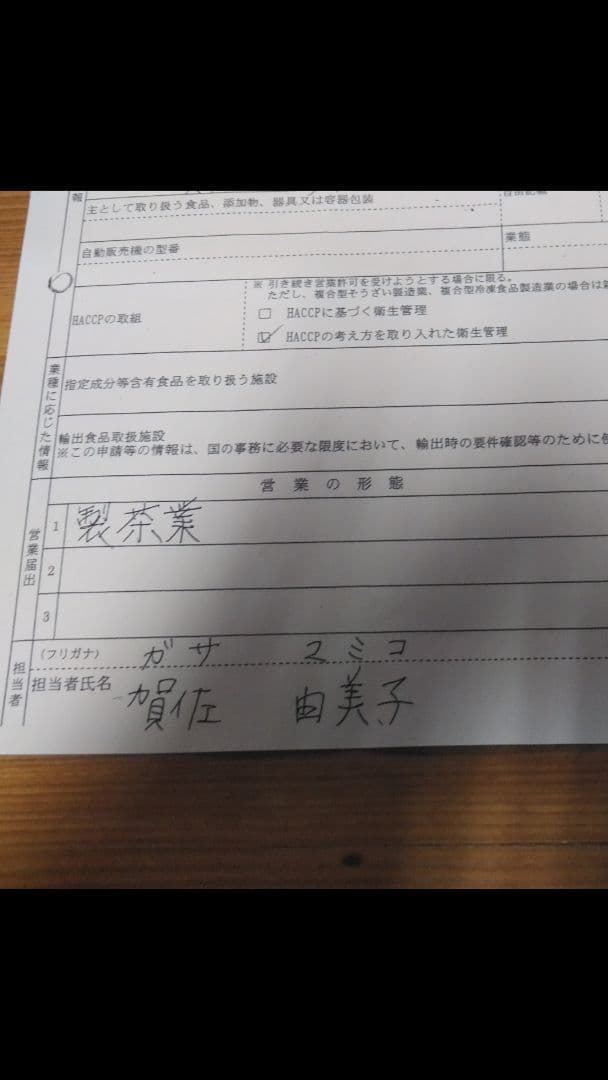 報
主として取り扱う食品、添加物、器具又は容器包装
自動販売機の型番
業態
HACCPの取組
※ 引き続き営業許可を受けようとする場合に限る。
ただし、複合型そうざい製造業、複合型冷凍食品製造業の場合は
□ HACCPに基づく衛生管理
☑ HACCPの考え方を取り入れた衛生管理
業種に応じた情報
指定成分等含有食品を取り扱う施設
輸出食品取扱施設
※この申請等の情報は、国の事務に必要な限度において、輸出時の要件確認等のために使
営業届出
営業の形態
1 製茶業
2
3
担当者
(フリガナ) ガサ ユミコ
担当者氏名 賀佐 由美子